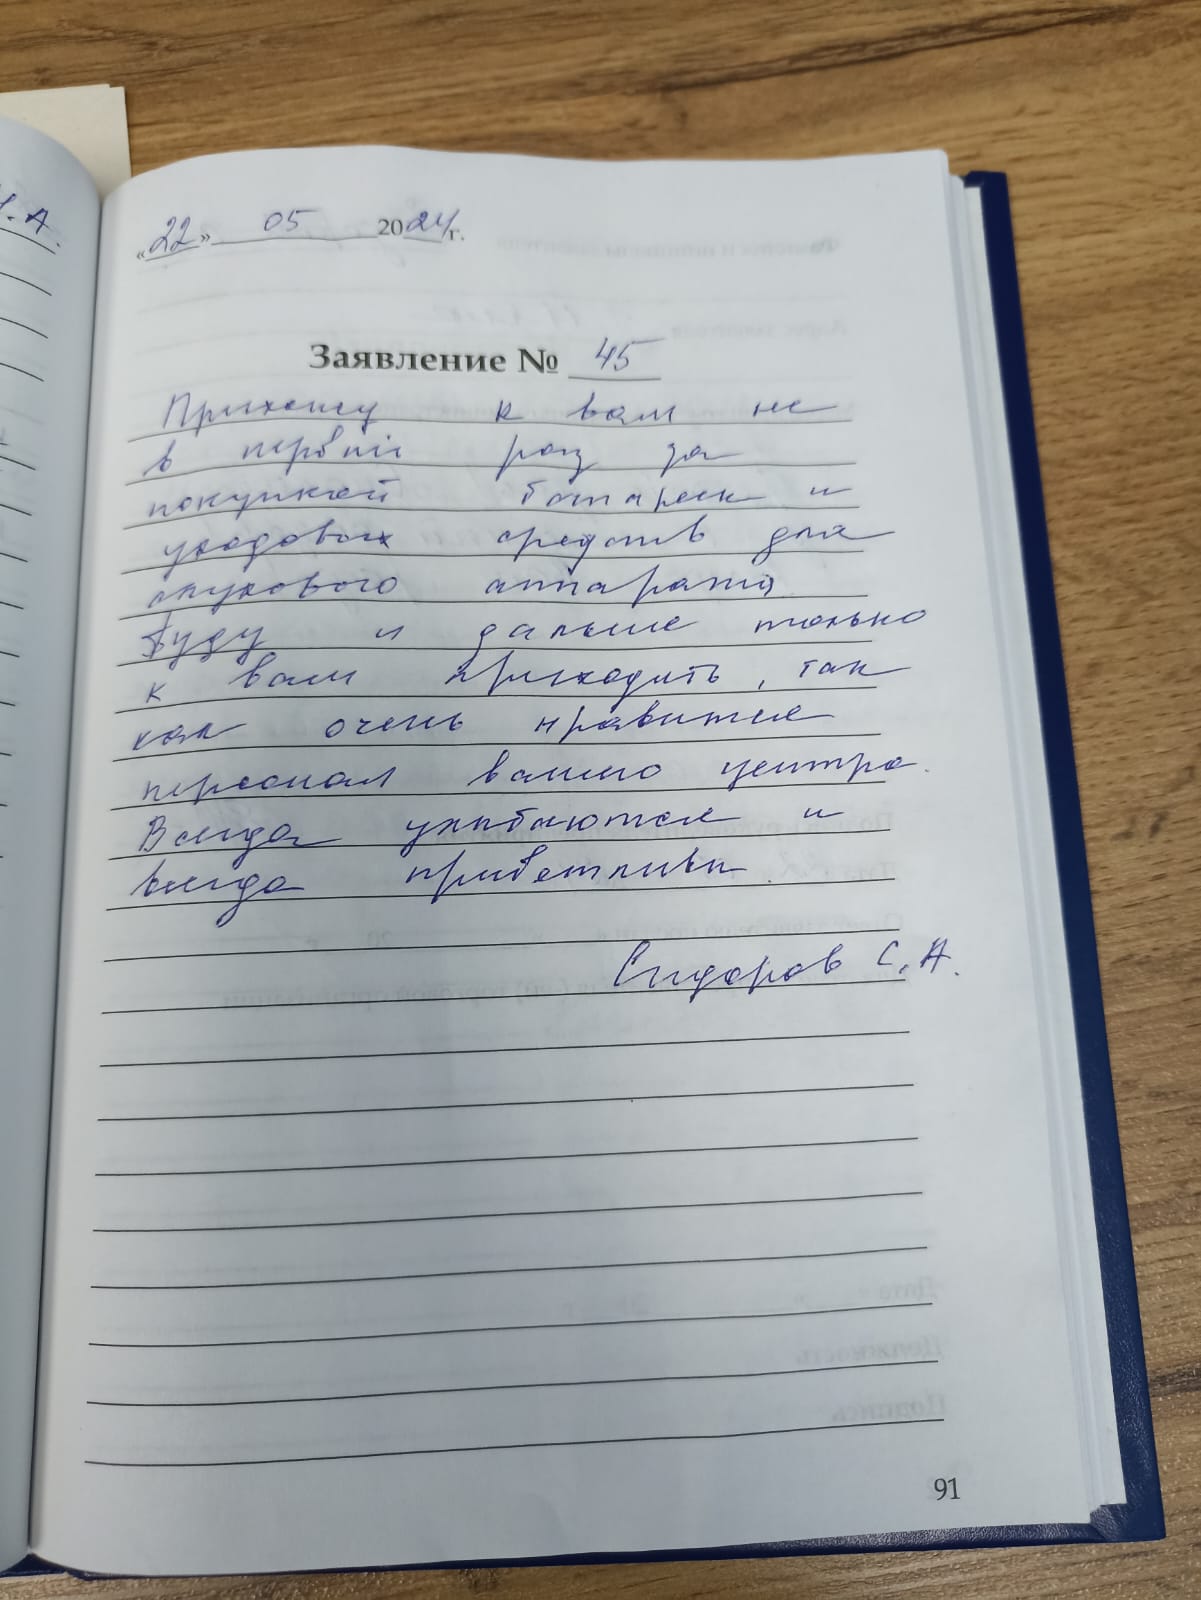 И.А.
«22» 05 2024г.
Заявление № 45
Прихожу к вам не
в первый раз за
покупкой батареек и
уходовых средств для
слухового аппарата
Буду и дальше только
к вам приходить, так
как очень нравится
персонал вашего центра.
Всегда улыбаются и
всегда приветливы.
Сидоров С.А.
91